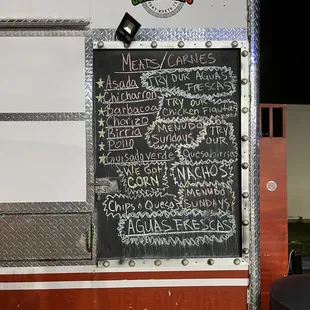 MEATS/CARNES
Asada
Chicharron
Barbacoa
Chorizo
Birria
Pollo
Guisado verde
TRY OUR AGUAS FRESCAS
TRY OUR
Chicken FLAUTAS
MENUDO
SUNDAYS
TRY OUR
Quesabirrias
WE GOT
CORN
NACHOS
MENUDO
SUNDAYS
Chips n Queso
AGUAS FRESCAS